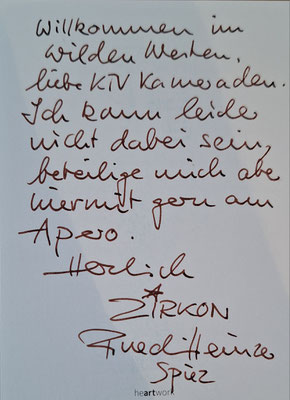 Willkommen im
Wilden Westen,
liebe KTV Kameraden.
Ich kann leider
nicht dabei sein,
beteilige mich aber
hiermit gern am
Apero.
Herzlich
ZIRKON
Ruedi Heinzer
Spiez
heartwork